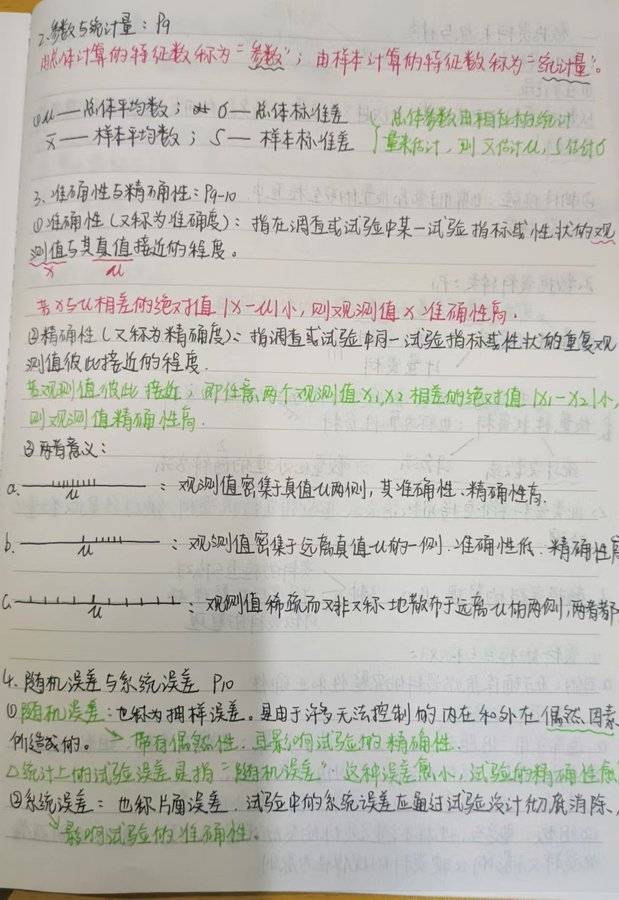 2.参数与统计量：P9
由总体计算的特征数称为“参数”；由样本计算的特征数称为“统计量”。
①μ——总体平均数；σ——总体标准差
x̄——样本平均数；S——样本标准差
总体参数由相应的统计
量来估计，则x̄估计μ，S估计σ
3.准确性与精确性：P9-10
①准确性（又称为准确度）：指在调查或试验中某一试验指标或性状的观
测值与其真值接近的程度。
x μ
若x与μ相差的绝对值|x-μ|小，则观测值x准确性高.
②精确性（又称为精确度）：指调查或试验中同一试验指标或性状的重复观
测值彼此接近的程度.
若观测值彼此接近，即任意两个观测值x₁,x₂相差的绝对值|x₁-x₂|小,
则观测值精确性高.
③两者意义：
a. μ ：观测值密集于真值μ两侧，其准确性、精确性高.
b. μ ：观测值密集于远离真值μ的一侧.准确性低.精确性高
c. μ ：观测值稀疏而又非对称地散布于远离μ的两侧,两者都
4.随机误差与系统误差 P10
①随机误差：也称为抽样误差。是由于许多无法控制的内在和外在偶然因素
所造成的。→带有偶然性.且影响试验的精确性.
△统计上的试验误差是指“随机误差”这种误差愈小，试验的精确性愈
②系统误差：也称片面误差.试验中的系统误差应通过试验设计彻底消除,
影响试验的准确性.